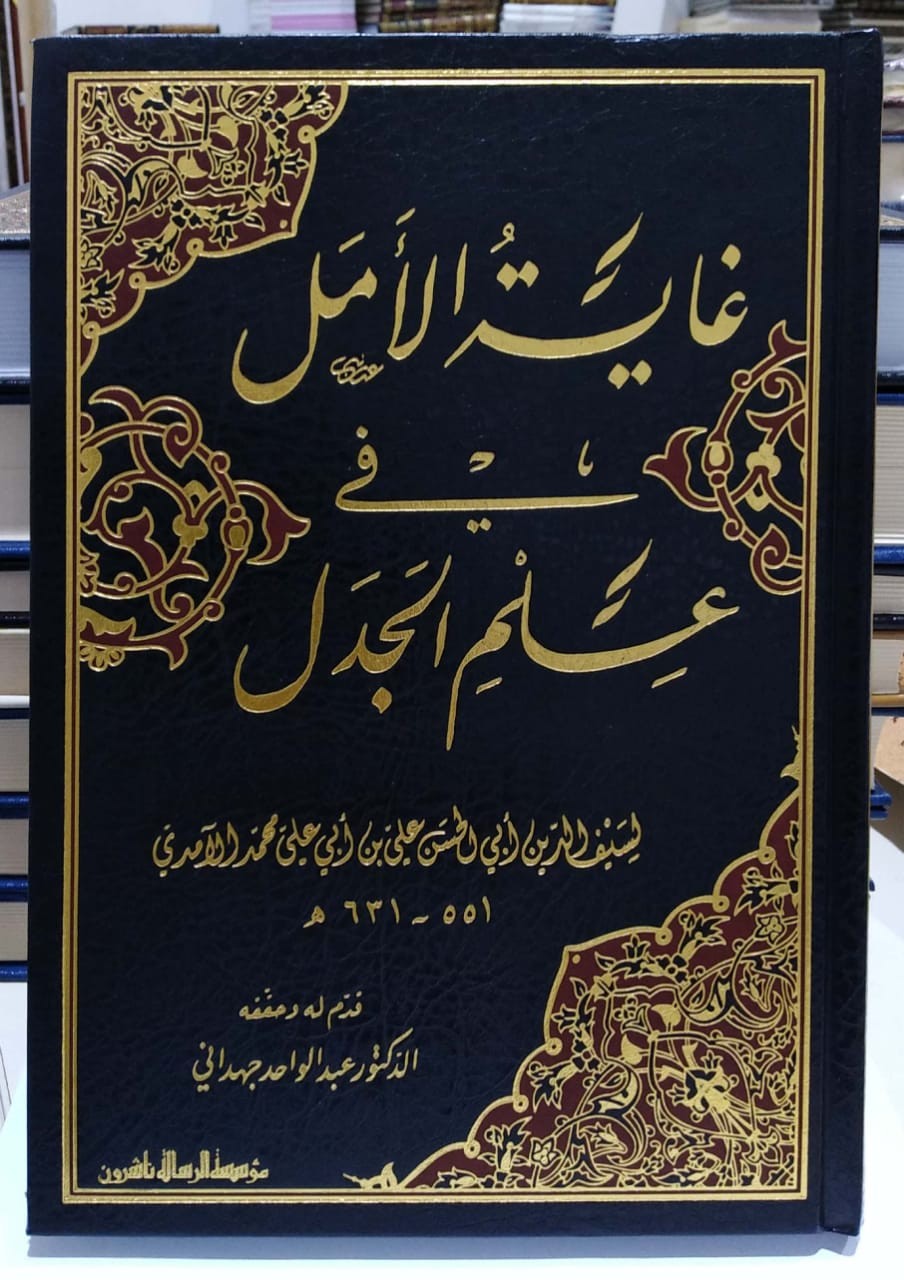 غَايَةُ الأَمَل
في
عِلْمِ الجَدَل
لسَيْف الدّين أبي الحسَن عليّ بن أبي عليّ محمّد الآمديّ
٥٥١ - ٦٣١ هـ
قدّم له وحقّقه
الدّكتور عبد الواحد جهداني
مؤسسة الرسالة ناشرون